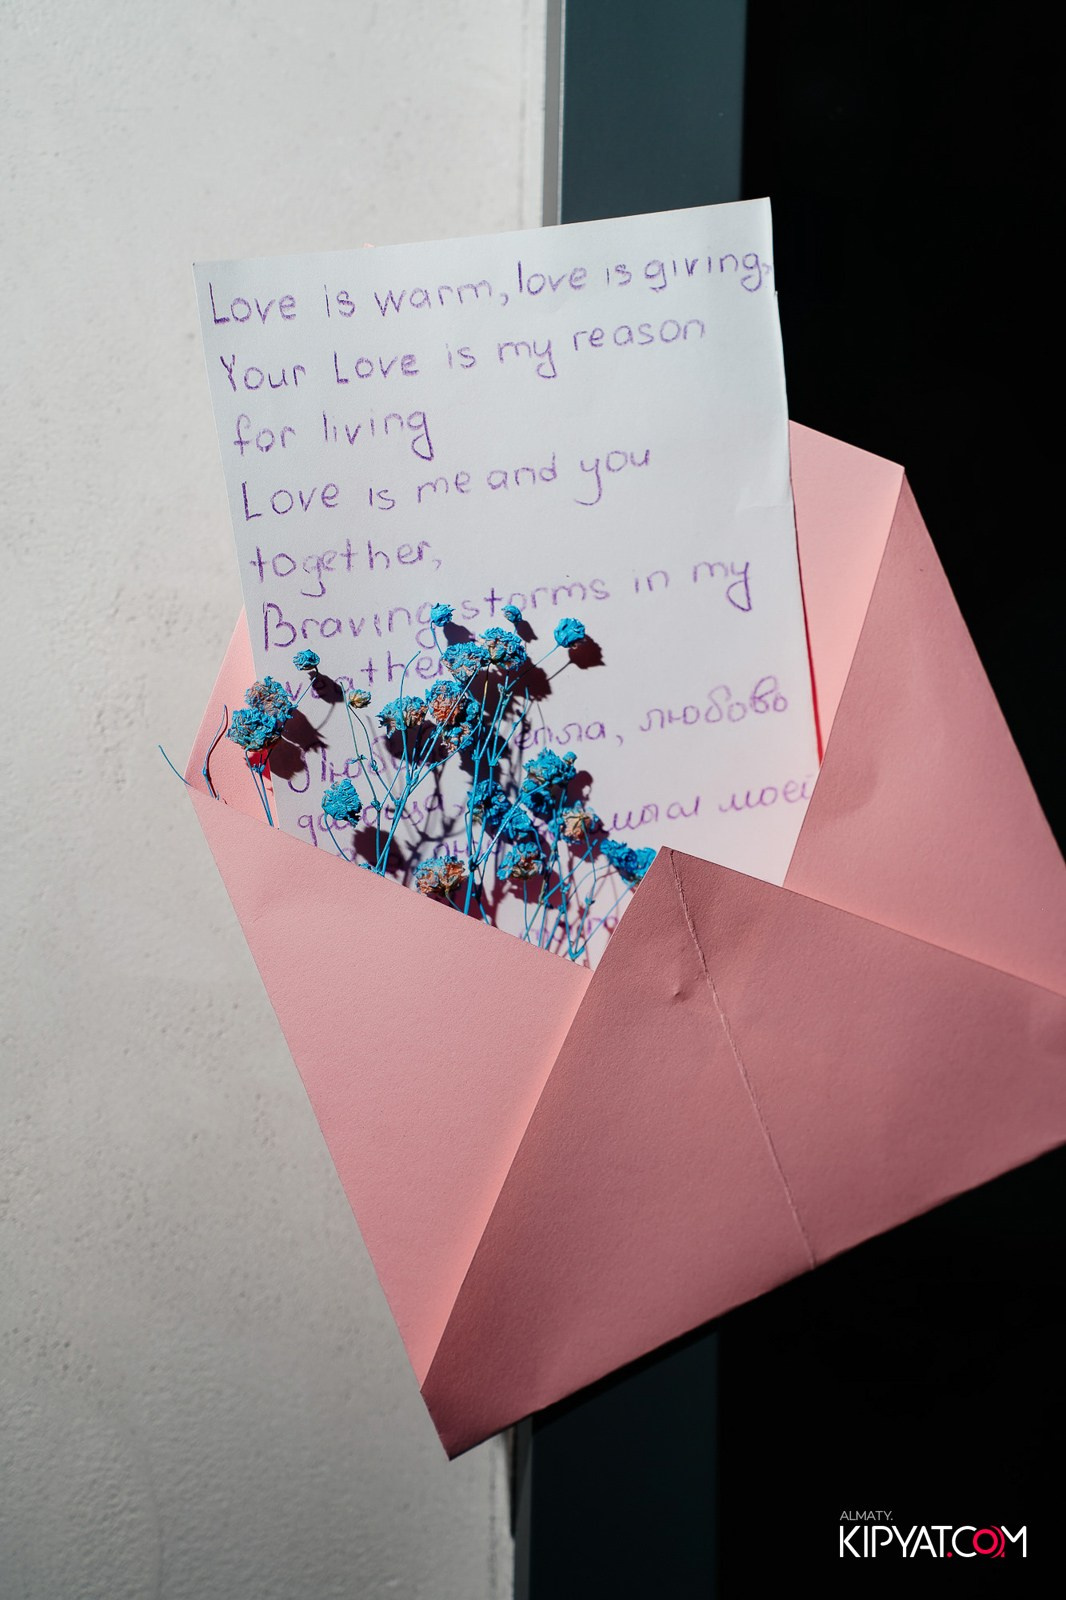 Love is warm, love is giving,
Your Love is my reason
for living
Love is me and you
together,
Braving storms in my
weather
любовь
моей
ALMATY.
KIPYAT.COM